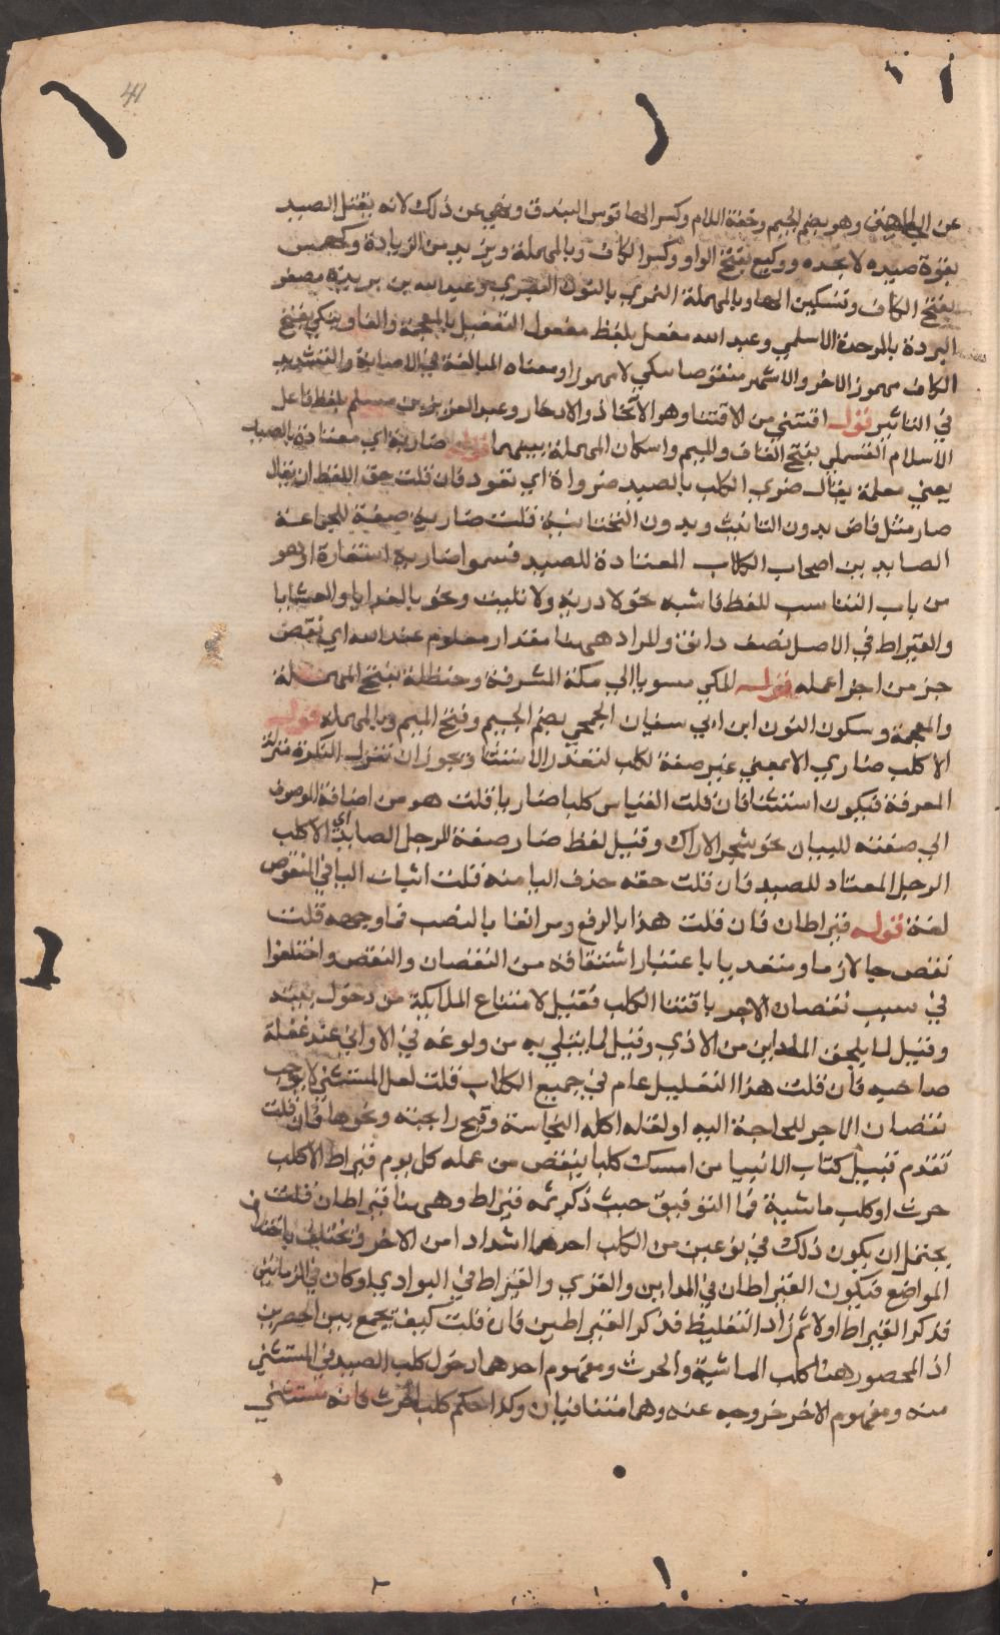 41
عن الجلاهق وهو بضم الجيم وخفة اللام وكسر الها قوس البندق ونهي عن ذلك لانه يقتل الصيد
بقوة صيده لا بحده ووكيع بفتح الواو وكسر الكاف وبالمهملة ويزيد من الزيادة وكهمس
بفتح الكاف وتسكين الها وبالمهملة النمري بالنون البصري وعبد الله بن بريدة مصغر
البردة بالموحدة الاسلمي وعبد الله مغفل بلفظ مفعول التفضيل بالمعجمة والفا وينكي بفتح
الكاف مهموز الاخر والاشهر منقوصا ينكي لا مهموزا ومعناه المبالغة في الاصابة والتشديد
في التاثير قوله اقتني من الاقتنا وهو الاتخاذ والادخار وعبد العزيز بن مسلم بلفظ فاعل
الاسلام القسملي بفتح القاف والميم واسكان المهملة بينهما قوله ضارية اي معتادة بالصيد
يعني معلمة يقال ضري الكلب بالصيد ضراوة اي تعود فان قلت حق اللفظ ان يقال
ضار مثل قاض بدون التانيث وبدون التحتانية قلت ضارية صفة للجماعة
الصايدين اصحاب الكلاب المعتادة للصيد فسموا ضارية استعارة او هو
من باب التناسب للفظ ماشية نحو لا دريت ولا تليت ونحو بالغدايا والعشايا
والقيراط في الاصل نصف دانق والمراد ههنا مقدار معلوم عند الله اي نقص
جز من اجزا عمله قوله المكي منسوبا الي مكة المشرفة وحنظلة بفتح المهملة
والمعجمة وسكون النون ابن ابي سفيان الجمحي بضم الجيم وفتح الميم وبالمهملة قوله
الا كلب ضاري الا بمعني غير صفة لكلب لتعذر الاستثنا ويجوز ان تنزل النكرة منزلة
المعرفة فيكون استثنا فان قلت القياس كلبا ضاريا قلت هو من اضافة الموصوف
الي صفته للبيان نحو شجر الاراك وقيل لفظ ضار صفة للرجل الصايد اي الا كلب
الرجل المعتاد للصيد فان قلت حقه حذف اليا منه قلت اثبات اليا في المنقوص
لغة قوله قيراطان فان قلت هذا بالرفع ومر انفا بالنصب فما وجهه قلت
نقص جا لازما ومتعديا باعتبار اشتقاقه من النقصان والنقص واختلفوا
في سبب نقصان الاجر باقتنا الكلب فقيل لامتناع الملايكة من دخول بيته
وقيل لما يلحق المارين من الاذي وقيل لما يبتلي به من ولوغه في الاواني عند غفلة
صاحبه فان قلت هذا التعليل عام في جميع الكلاب قلت لعل المستثني لا يوجب
نقصان الاجر للحاجة اليه او لقلة اكله النجاسة وقبح رايحته ونحوها فان قلت
تقدم قبيل كتاب الانبيا من امسك كلبا ينقص من عمله كل يوم قيراط الا كلب
حرث او كلب ماشية فما التوفيق حيث ذكر ثمه قيراط وههنا قيراطان قلت
يحتمل ان يكون ذلك في نوعين من الكلاب احدهما اشد اذا من الاخر او يختلف باختلاف
المواضع فيكون القيراطان في المداين والقري والقيراط في البوادي او كان في الزمانين
فذكر القيراط اولا ثم زاد التغليظ فذكر القيراطين فان قلت كيف يجمع بين الحصرين
اذ المحصور هنا كلب الماشية والحرث ومفهوم احدهما دخول كلب الصيد في المستثني
منه ومفهوم الاخر خروجه عنه وهما متنافيان وكذا حكم كلب الحرث فانه مستثني